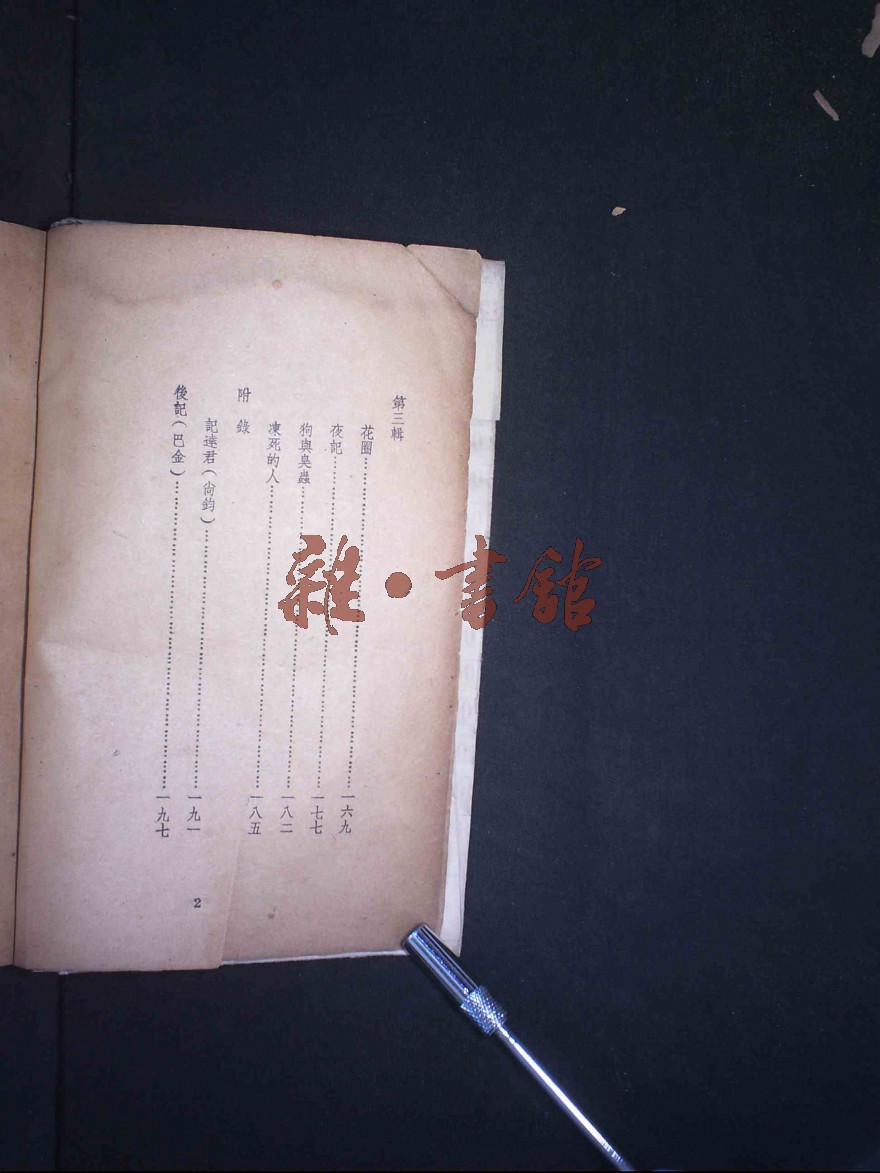 第三輯
花圈……一六九
夜記……一七七
狗與臭蟲……一八二
凍死的人……一八五
附錄
記達君(尙鈞)……一九一
後記(巴金)……一九七
2
雜·書館